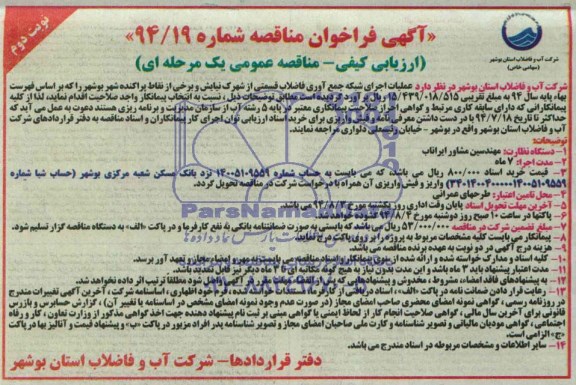 نوبت دوم
«آگهی فراخوان مناقصه شماره ۹۴/۱۹»
(ارزیابی کیفی- مناقصه عمومی یک مرحله ای)
شرکت آب و فاضلاب استان بوشهر
(سهامی خاص)
شرکت آب و فاضلاب استان بوشهر در نظر دارد عملیات اجرای شبکه جمع آوری فاضلاب قسمتی از شهرک نیایش و برخی از نقاط پراکنده شهر بوشهر را که بر اساس فهرست
بهاء پایه سال ۹۴ به مبلغ تقریبی ۱۵/۴۳۹/۰۱۸/۵۱۵ ریال است مطابق توضیحات ذیل، نسبت به انتخاب پیمانکار واجد صلاحیت اقدام نماید، لذا از کلیه
پیمانکارانی که دارای سابقه کاری مرتبط و گواهی احراز صلاحیت پیمانکاری معتبر در پایه ۵ رشته آب از سازمان مدیریت و برنامه ریزی هستند دعوت به عمل می آید که
حداکثر تا تاریخ ۹۴/۷/۱۸ با در دست داشتن معرفی نامه و فیش واریزی برای خرید اسناد ارزیابی توان اجرای کار پیمانکاران و اسناد مناقصه به دفتر قراردادهای شرکت
آب و فاضلاب استان بوشهر واقع در بوشهر - خیابان رئیسعلی دلواری مراجعه نمایند.
توضیحات:
۱- دستگاه نظارت: مهندسین مشاور ایراناب
۲- مدت اجرا: ۷ ماه
۳- قیمت خرید اسناد ۸۰۰/۰۰۰ ریال می باشد، که می بایست به حساب شماره ۱۴۰۰۵۱۰۹۵۵۹ نزد بانک مسکن شعبه مرکزی بوشهر (حساب شبا شماره
) واریز و فیش واریزی آن همراه با درخواست شرکت در مناقصه تحویل گردد.
۴- محل تامین اعتبار: طرحهای عمرانی
۵- آخرین مهلت تحویل اسناد پایان وقت اداری روز یکشنبه مورخ ۹۴/۸/۳ می باشد.
۶- پاکتها در ساعت ۱۰ صبح روز دوشنبه مورخ ۹۴/۸/۴ گشوده خواهد شد.
۷- مبلغ تضمین شرکت در مناقصه ۵۳/۰۰۰/۰۰۰ ریال می باشد که بایستی به صورت ضمانتنامه بانکی به نفع کارفرما و در پاکت «الف» به دستگاه مناقصه گزار تسلیم شود.
۸- پیمانکار می بایست کلیه مشخصات مربوط به پروژه را بر روی پاکت درج نماید.
۹- هزینه درج آگهی در دو نوبت به عهده برنده مناقصه می باشد.
۱۰- کلیه اسناد و مدارک خواسته شده و ارائه شده از سوی پیمانکار و اسناد مناقصه می بایست به مهر و امضاء مجاز و تعهد آور برسد.
۱۱- مدت اعتبار پیشنهاد باید ۳ ماه باشد و این مدت بدون نیاز به هیچ گونه مکاتبه ای تا ۳ ماه دیگر نیز قابل تمدید باشد.
۱۲- به پیشنهادهای فاقد امضاء، مشروط، مخدوش و پیشنهادهایی که بعد از انقضاء مدت مقرر در فراخوان واصل شود مطلقا ترتیب اثر داده نخواهد شد.
۱۴- سایر اطلاعات و مشخصات مربوطه در اسناد مندرج می باشد.
دفتر قراردادها- شرکت آب و فاضلاب استان بوشهر
ParsNamadData